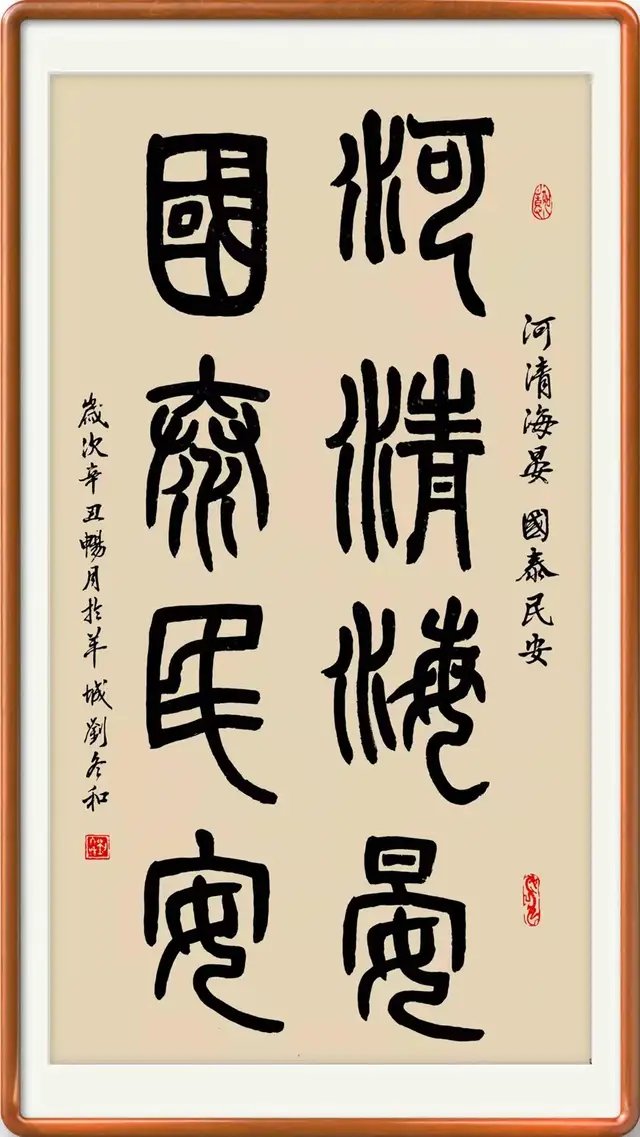 河清海晏 國泰民安
河清海晏
國泰民安
歲次辛丑暢月於羊城劉冬和